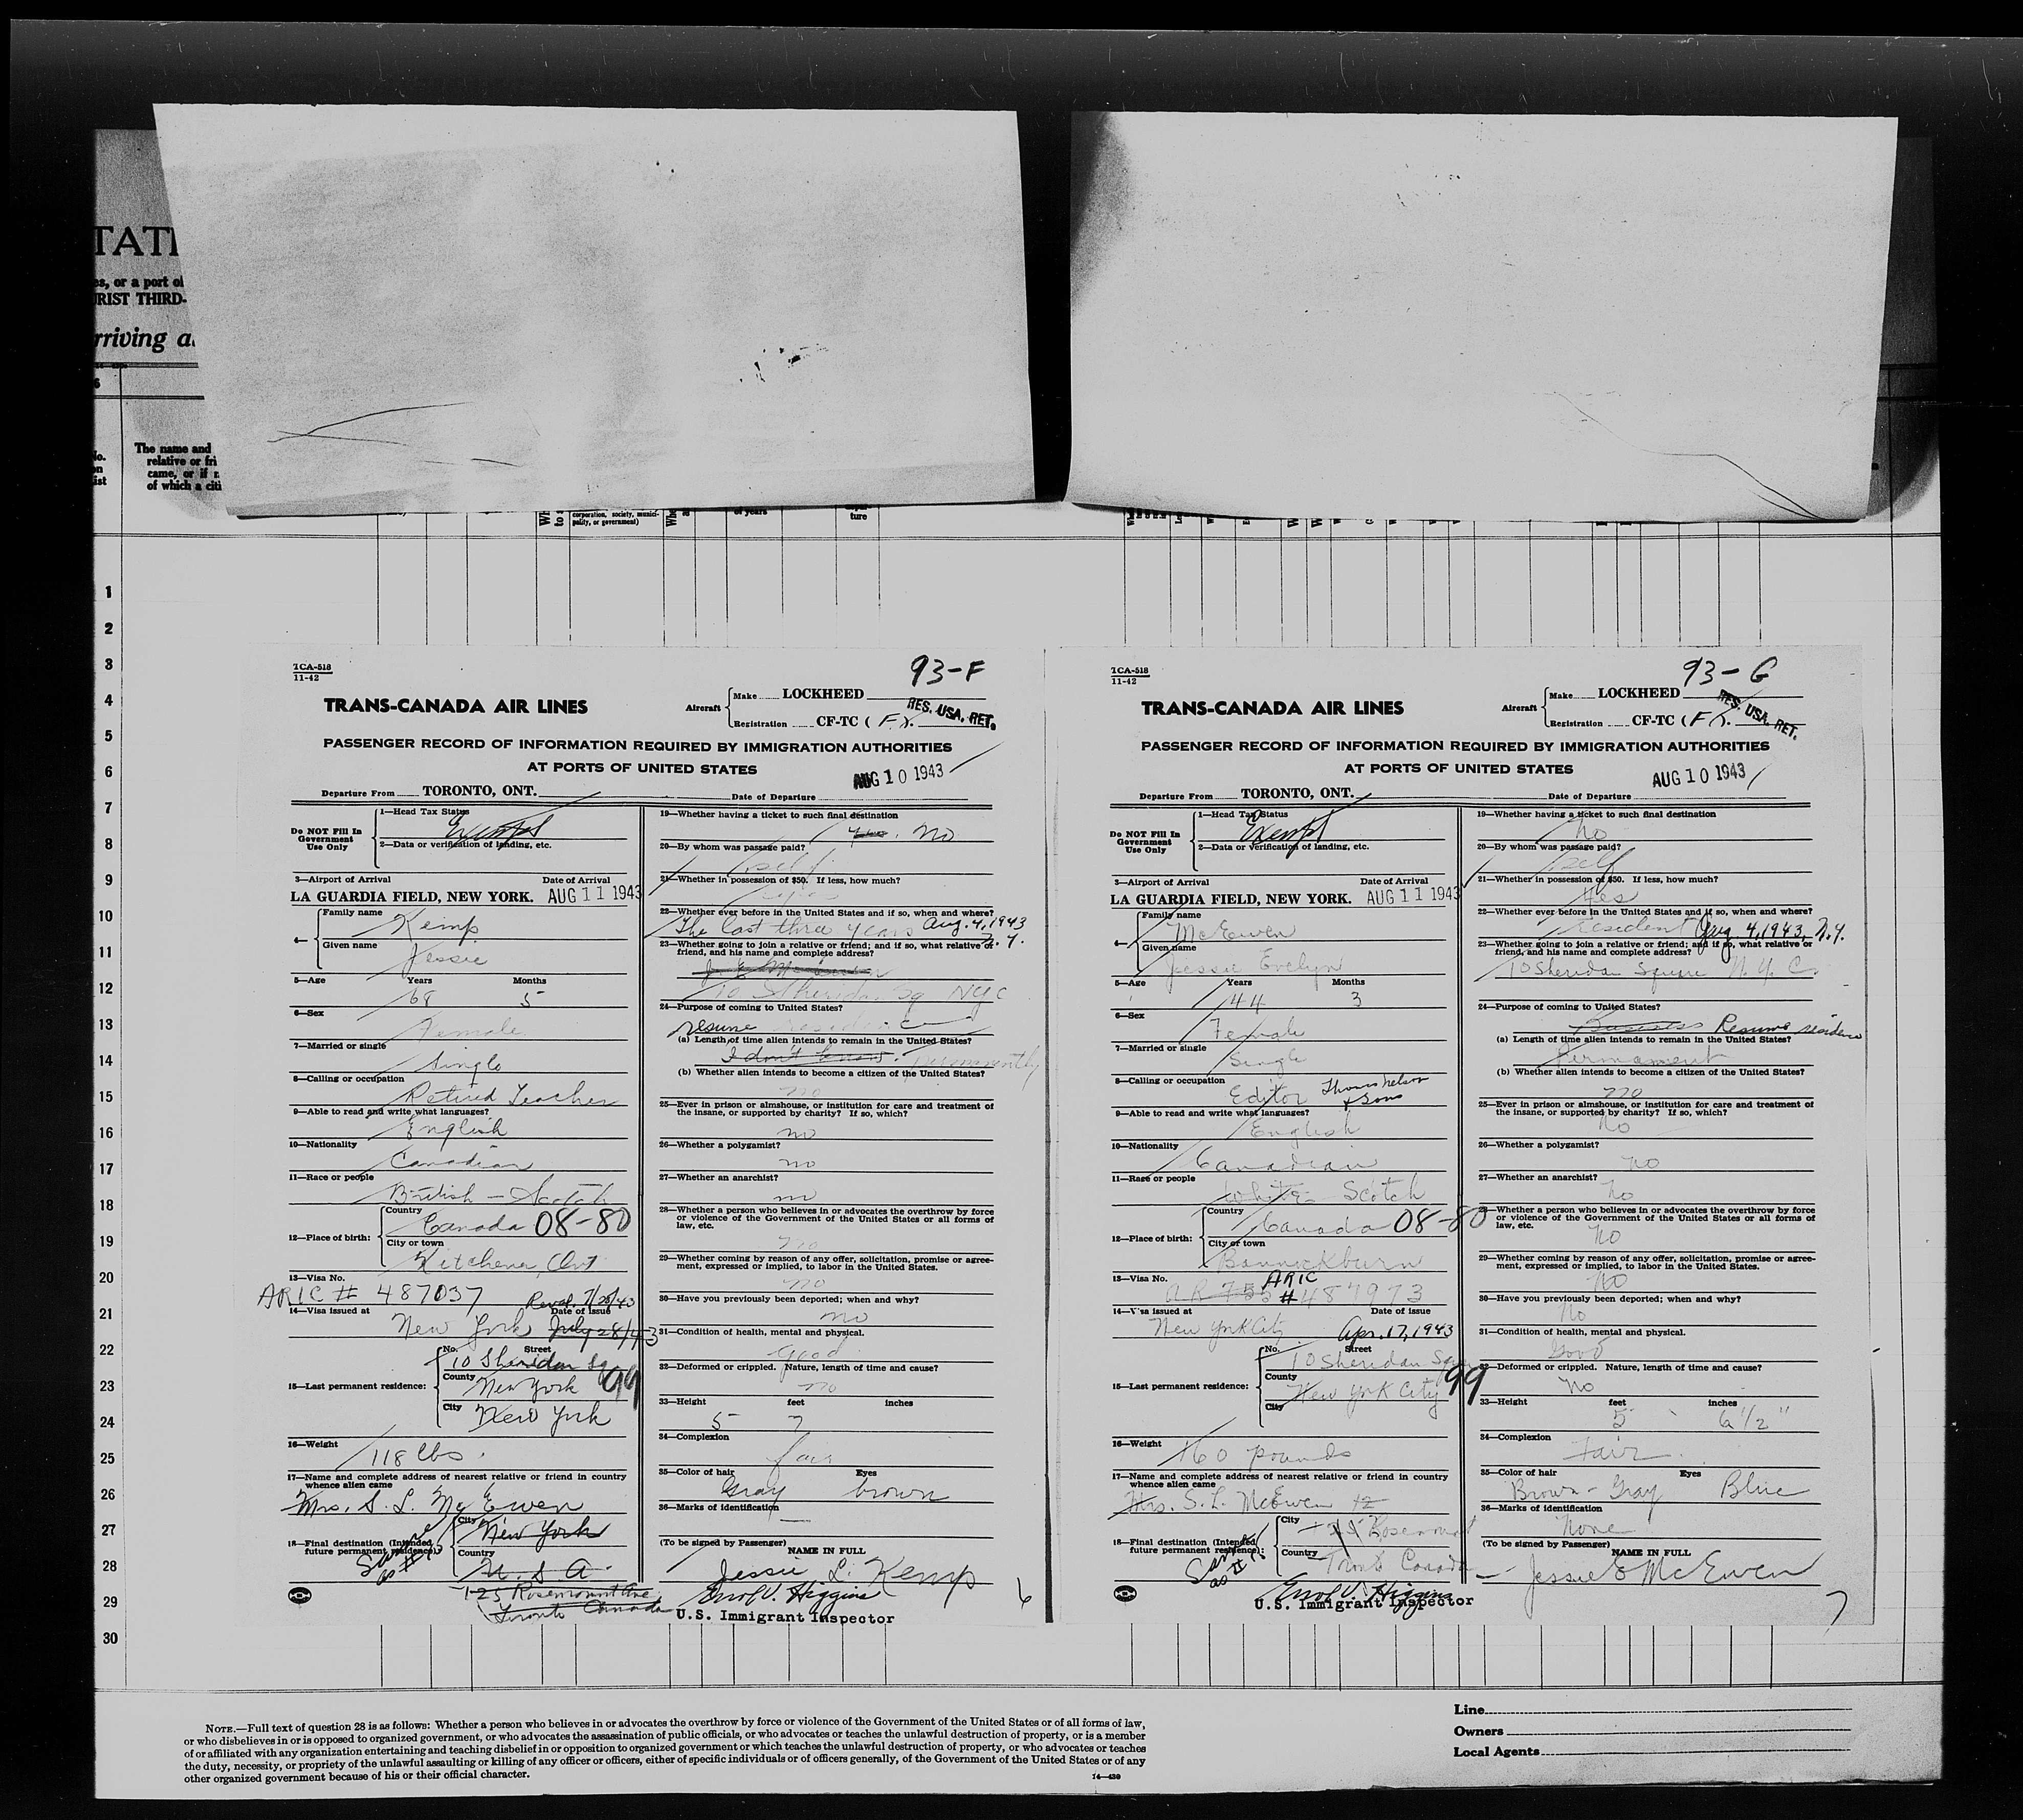 TATE
es, or a port of
RIST THIRD-
rriving a
The name and
relative or fri
came, or if
of which a citi
corporation, society, munici-
pality, or government)
of years
ture
1
2
3
4
5
6
7
8
9
10
11
12
13
14
15
16
17
18
19
20
21
22
23
24
25
26
27
28
29
30
TCA-518
11-42
93-F
TRANS-CANADA AIR LINES
Aircraft
Make LOCKHEED
Registration CF-TC (F).
RES. USA. RET.
PASSENGER RECORD OF INFORMATION REQUIRED BY IMMIGRATION AUTHORITIES
AT PORTS OF UNITED STATES
AUG 10 1943
Departure From TORONTO, ONT.
Date of Departure
Do NOT Fill In
Government
Use Only
1—Head Tax Status
Exempt
2—Data or verification of landing, etc.
3—Airport of Arrival Date of Arrival
LA GUARDIA FIELD, NEW YORK. AUG 11 1943
4—
Family name
Kemp
Given name
Jessie
5—Age Years Months
68 5
6—Sex
Female
7—Married or single
Single
8—Calling or occupation
Retired Teacher
9—Able to read and write what languages?
English
10—Nationality
Canadian
11—Race or people
British - Scotch
12—Place of birth:
Country
Canada 08-80
City or town
Kitchener, Ont
13—Visa No.
ARIC # 487037 Reval. 7/28/43
14—Visa issued at Date of issue
New York July 28/43
15—Last permanent residence:
No. Street
10 Sheridan Sq
County
New York 99
City
New York
16—Weight
118 lbs.
17—Name and complete address of nearest relative or friend in country
whence alien came
Mrs. S. L. McEwen
18—Final destination (Intended
future permanent residence):
Same
as # 15
City
New York
Country
U. S. A.
125 Rosemount Ave.
Toronto Canada
19—Whether having a ticket to such final destination
Yes. No
20—By whom was passage paid?
self
21—Whether in possession of $50. If less, how much?
22—Whether ever before in the United States and if so, when and where?
The last three years Aug. 4, 1943
N. Y.
23—Whether going to join a relative or friend; and if so, what relative or
friend, and his name and complete address?
10 Sheridan Sq NYC
24—Purpose of coming to United States?
resume residence
(a) Length of time alien intends to remain in the United States?
I don't know. permanently
(b) Whether alien intends to become a citizen of the United States?
no
25—Ever in prison or almshouse, or institution for care and treatment of
the insane, or supported by charity? If so, which?
no
26—Whether a polygamist?
no
27—Whether an anarchist?
no
28—Whether a person who believes in or advocates the overthrow by force
or violence of the Government of the United States or all forms of
law, etc.
no
29—Whether coming by reason of any offer, solicitation, promise or agree-
ment, expressed or implied, to labor in the United States.
no
30—Have you previously been deported; when and why?
no
31—Condition of health, mental and physical.
Good
32—Deformed or crippled. Nature, length of time and cause?
no
33—Height feet inches
5 7
34—Complexion
fair
35—Color of hair Eyes
Gray brown
36—Marks of identification
—
(To be signed by Passenger) NAME IN FULL
Jessie L. Kemp
Errol V. Higgins
U.S. Immigrant Inspector
6
TCA-518
11-42
93-G
TRANS-CANADA AIR LINES
Aircraft
Make LOCKHEED
Registration CF-TC (F).
RES. USA. RET.
PASSENGER RECORD OF INFORMATION REQUIRED BY IMMIGRATION AUTHORITIES
AT PORTS OF UNITED STATES
AUG 10 1943
Departure From TORONTO, ONT.
Date of Departure
Do NOT Fill In
Government
Use Only
1—Head Tax Status
Exempt
2—Data or verification of landing, etc.
3—Airport of Arrival Date of Arrival
LA GUARDIA FIELD, NEW YORK. AUG 11 1943
4—
Family name
McEwen
Given name
Jessie Evelyn
5—Age Years Months
44 3
6—Sex
Female
7—Married or single
Single
8—Calling or occupation
Editor Thomas Nelson
& Sons
9—Able to read and write what languages?
English
10—Nationality
Canadian
11—Race or people
White - Scotch
12—Place of birth:
Country
Canada 08-80
City or town
Bannockburn
13—Visa No.
ARIC
# 487973
14—Visa issued at Date of issue
New York City Apr. 17, 1943
15—Last permanent residence:
No. Street
10 Sheridan Square
County
New York City 99
City
16—Weight
160 pounds
17—Name and complete address of nearest relative or friend in country
whence alien came
Mrs. S. L. McEwen
18—Final destination (Intended
future permanent residence):
Same
as # 15
City
Rosemount
Country
Canada
19—Whether having a ticket to such final destination
No
20—By whom was passage paid?
self
21—Whether in possession of $50. If less, how much?
Yes
22—Whether ever before in the United States and if so, when and where?
Resident Aug. 4, 1943, N.Y.
23—Whether going to join a relative or friend; and if so, what relative or
friend, and his name and complete address?
10 Sheridan Square N. Y. C.
24—Purpose of coming to United States?
Business Resume residence
(a) Length of time alien intends to remain in the United States?
Permanent
(b) Whether alien intends to become a citizen of the United States?
no
25—Ever in prison or almshouse, or institution for care and treatment of
the insane, or supported by charity? If so, which?
No
26—Whether a polygamist?
no
27—Whether an anarchist?
No
28—Whether a person who believes in or advocates the overthrow by force
or violence of the Government of the United States or all forms of
law, etc.
No
29—Whether coming by reason of any offer, solicitation, promise or agree-
ment, expressed or implied, to labor in the United States.
No
30—Have you previously been deported; when and why?
No
31—Condition of health, mental and physical.
Good
32—Deformed or crippled. Nature, length of time and cause?
No
33—Height feet inches
5 6 1/2"
34—Complexion
Fair
35—Color of hair Eyes
Brown - Gray Blue
36—Marks of identification
None
(To be signed by Passenger) NAME IN FULL
Jessie E McEwen
Errol V. Higgins
U.S. Immigrant Inspector
7
NOTE.—Full text of question 28 is as follows: Whether a person who believes in or advocates the overthrow by force or violence of the Government of the United States or of all forms of law,
or who disbelieves in or is opposed to organized government, or who advocates the assassination of public officials, or who advocates or teaches the unlawful destruction of property, or is a member
of or affiliated with any organization entertaining and teaching disbelief in or opposition to organized government or which teaches the unlawful destruction of property, or who advocates or teaches
the duty, necessity, or propriety of the unlawful assaulting or killing of any officer or officers, either of specific individuals or of officers generally, of the Government of the United States or of any
other organized government because of his or their official character.
14—430
Line
Owners
Local Agents